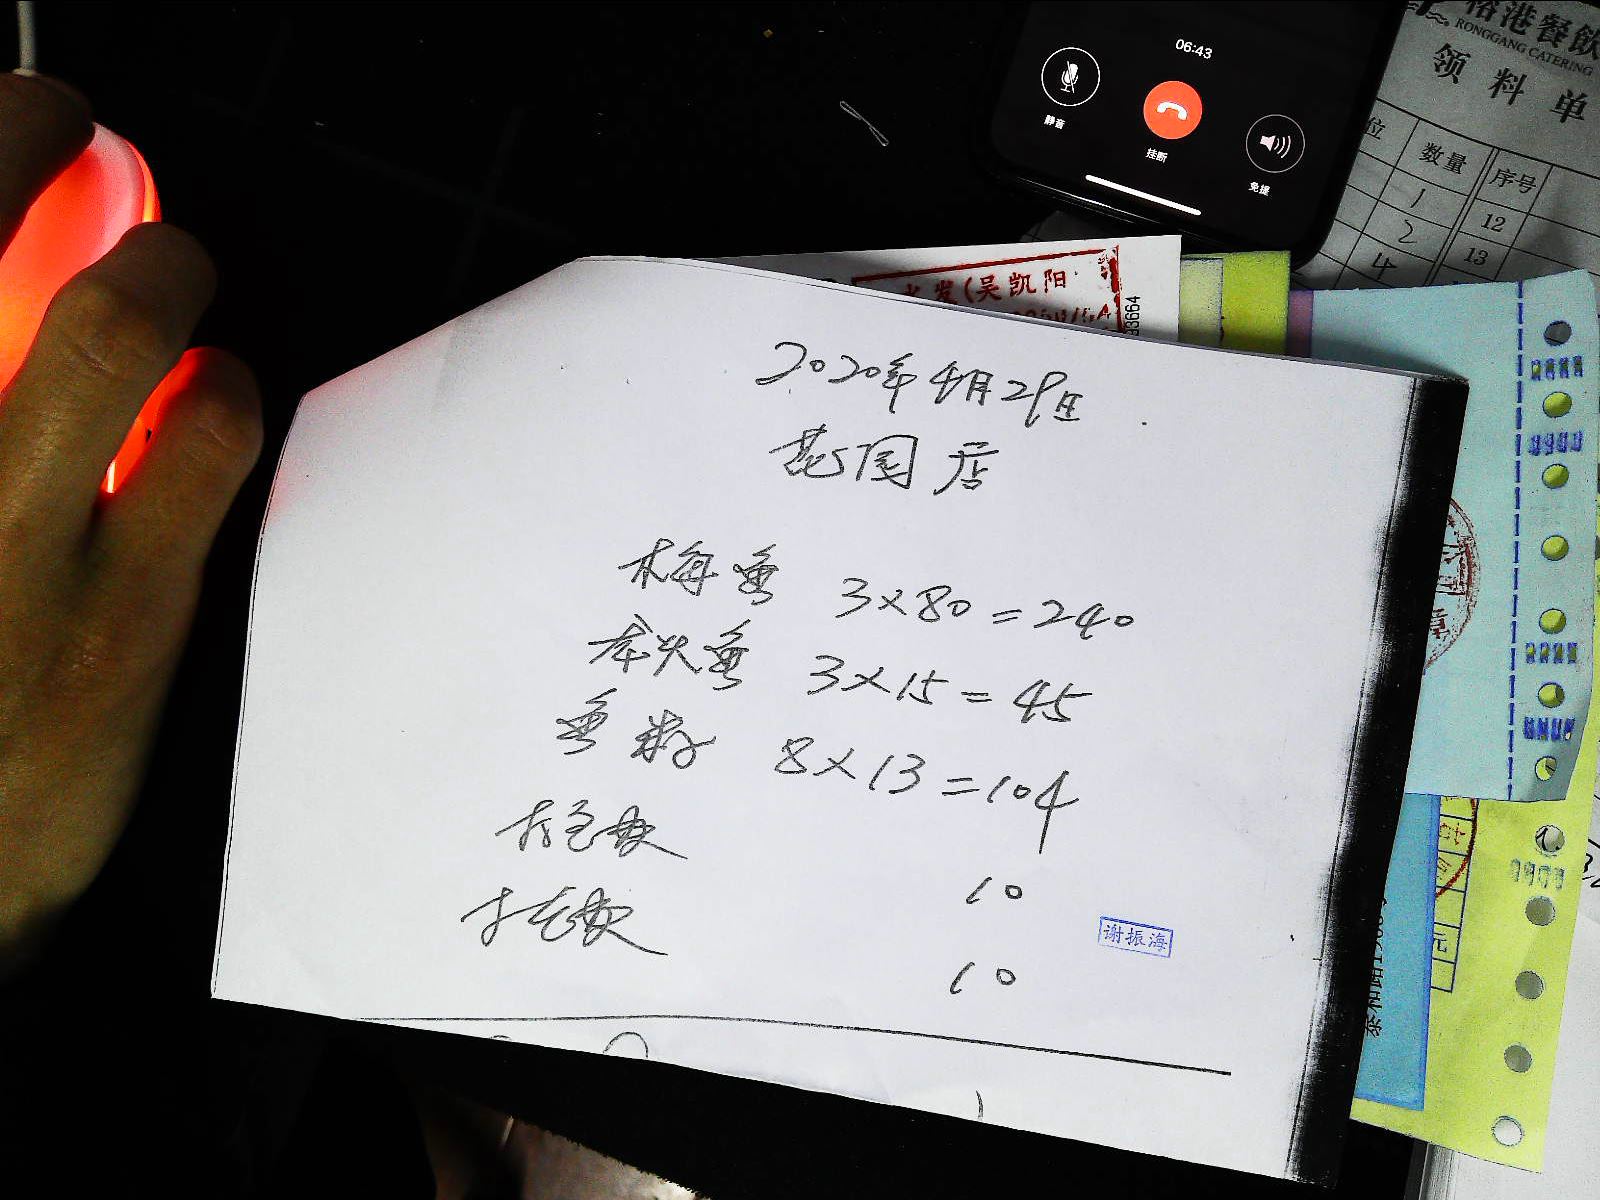 06:43
静音
挂断
免提
裕港餐飲
RONGGANG CATERING
领料单
位 数量 序号
1 12
2 13
4
发(吴凯阳
93664
2020年4月29日
花园店
梅鱼 3×80=240
龙头鱼 3×15=45
鱼籽 8×13=104
打包费 10
打包费 10
谢振海